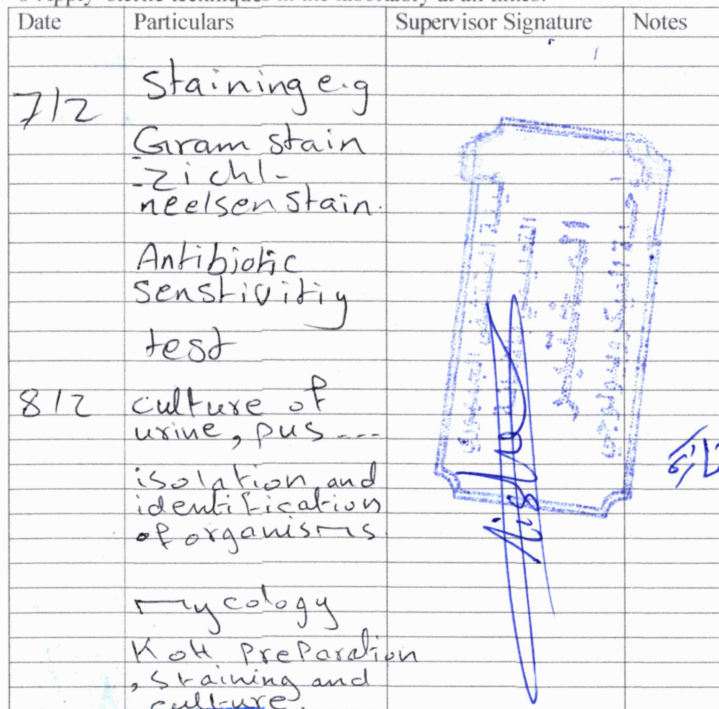 Date Particulars Supervisor Signature Notes
7/2 Staining e.g
Gram stain
-Zichl-
neelsen stain.
Antibiotic
senstivitiy
test
8/2 culture of
urine, pus ---
isolation and
identification
of organisms
mycology
KoH Preparation
, staining and
culture.